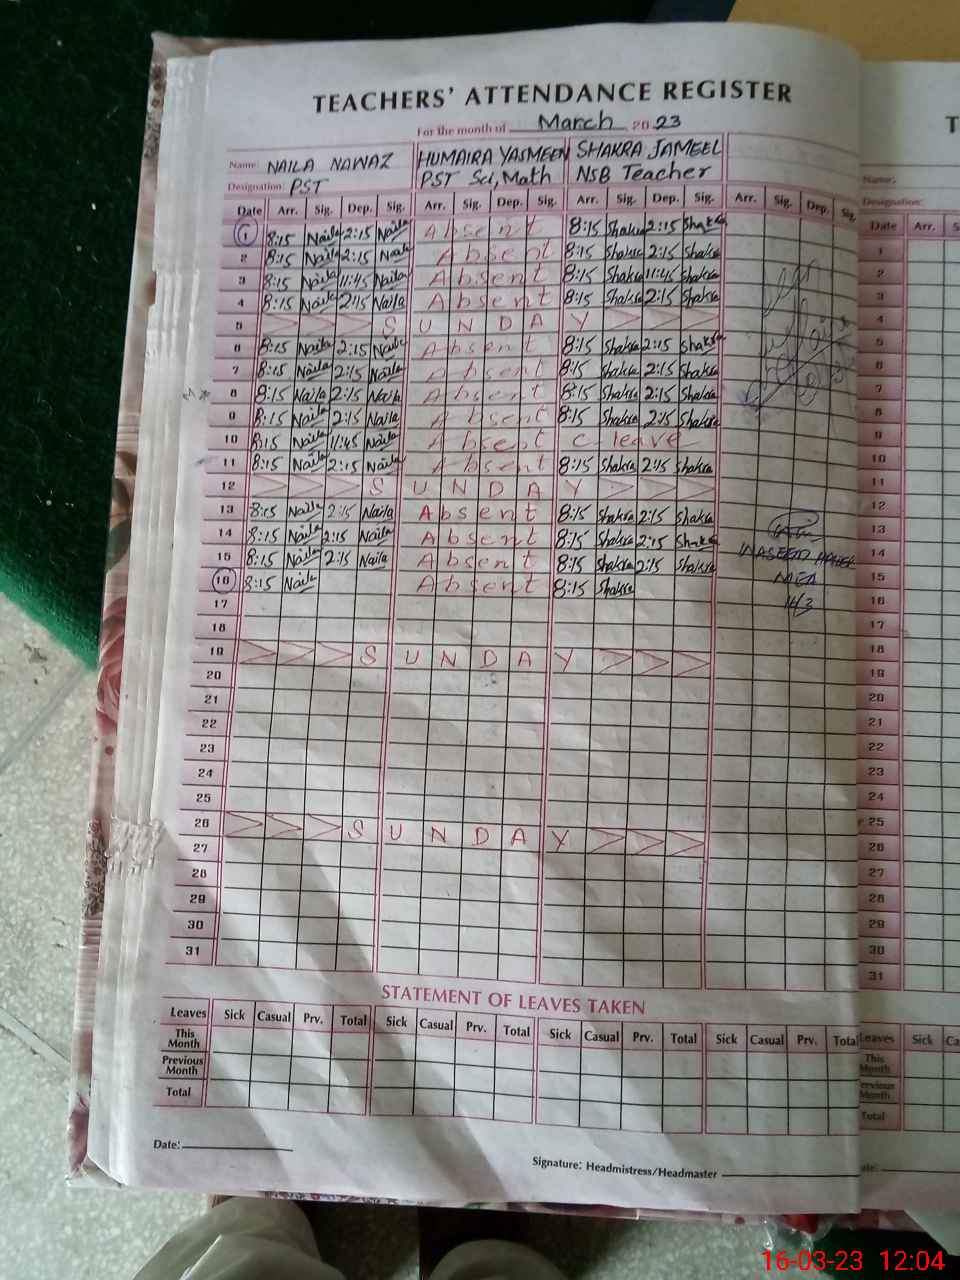 TEACHERS' ATTENDANCE REGISTER
For the month of March 2023
Name: NAILA NAWAZ HUMAIRA YASMEEN SHAKRA JAMEEL
Designation: PST PST Sci, Math NSB Teacher
Date Arr. Sig. Dep. Sig. Arr. Sig. Dep. Sig. Arr. Sig. Dep. Sig. Arr. Sig. Dep. Sig.
1 8:15 Naila 2:15 Naila Absent 8:15 Shakra 2:15 Shakra
2 8:15 Naila 2:15 Naila Absent 8:15 Shakra 2:15 Shakra
3 8:15 Naila 11:45 Naila Absent 8:15 Shakra 11:45 Shakra
4 8:15 Naila 2:15 Naila Absent 8:15 Shakra 2:15 Shakra
5 SUNDAY
6 8:15 Naila 2:15 Naila Absent 8:15 Shakra 2:15 Shakra
7 8:15 Naila 2:15 Naila Absent 8:15 Shakra 2:15 Shakra
8 8:15 Naila 2:15 Naila Absent 8:15 Shakra 2:15 Shakra
9 8:15 Naila 2:15 Naila Absent 8:15 Shakra 2:15 Shakra
10 8:15 Naila 11:45 Naila Absent c-leave
11 8:15 Naila 2:15 Naila Absent 8:15 Shakra 2:15 Shakra
12 SUNDAY
13 8:15 Naila 2:15 Naila Absent 8:15 Shakra 2:15 Shakra
14 8:15 Naila 2:15 Naila Absent 8:15 Shakra 2:15 Shakra
15 8:15 Naila 2:15 Naila Absent 8:15 Shakra 2:15 Shakra
16 8:15 Naila Absent 8:15 Shakra
17
18
19 SUNDAY
20
21
22
23
24
25
26 SUNDAY
27
28
29
30
31
WASEEM
MEA
STATEMENT OF LEAVES TAKEN
Leaves Sick Casual Prv. Total Sick Casual Prv. Total Sick Casual Prv. Total Sick Casual Prv. Total
This Month
Previous Month
Total
Date:
Signature: Headmistress/Headmaster
T
Name:
Designation:
Date Arr. S
1
2
3
4
5
6
7
8
9
10
11
12
13
14
15
16
17
18
19
20
21
22
23
24
25
26
27
28
29
30
31
Leaves Sick Ca
This Month
Previous Month
Total
16-03-23 12:04